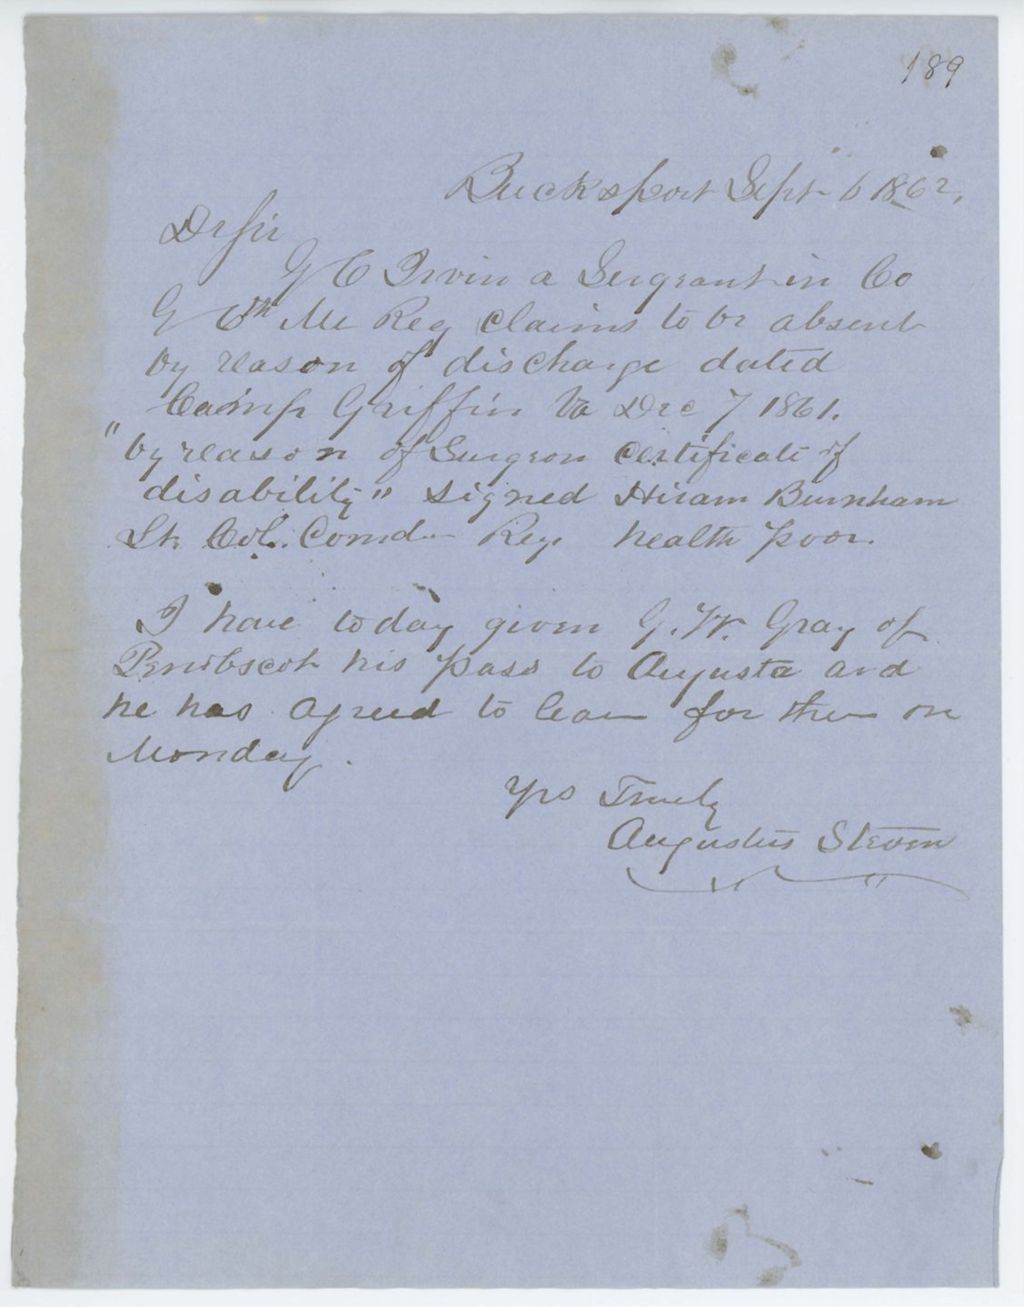 189
Bucksport Sept 6 1862.
Dr Sir
G C Irvin a Sergeant in Co
G 6th Me Reg claims to be absent
by reason of discharge dated
Camp Griffin Va Dec 7 1861.
"by reason of Surgeon certificate of
disability" signed Hiram Burnham
Lt. Col. Comd- Reg. health poor.
I have today given G. W. Gray of
Penobscot his pass to Augusta and
he has agreed to leave for there on
Monday.
Yrs Truely
Augustus Steven